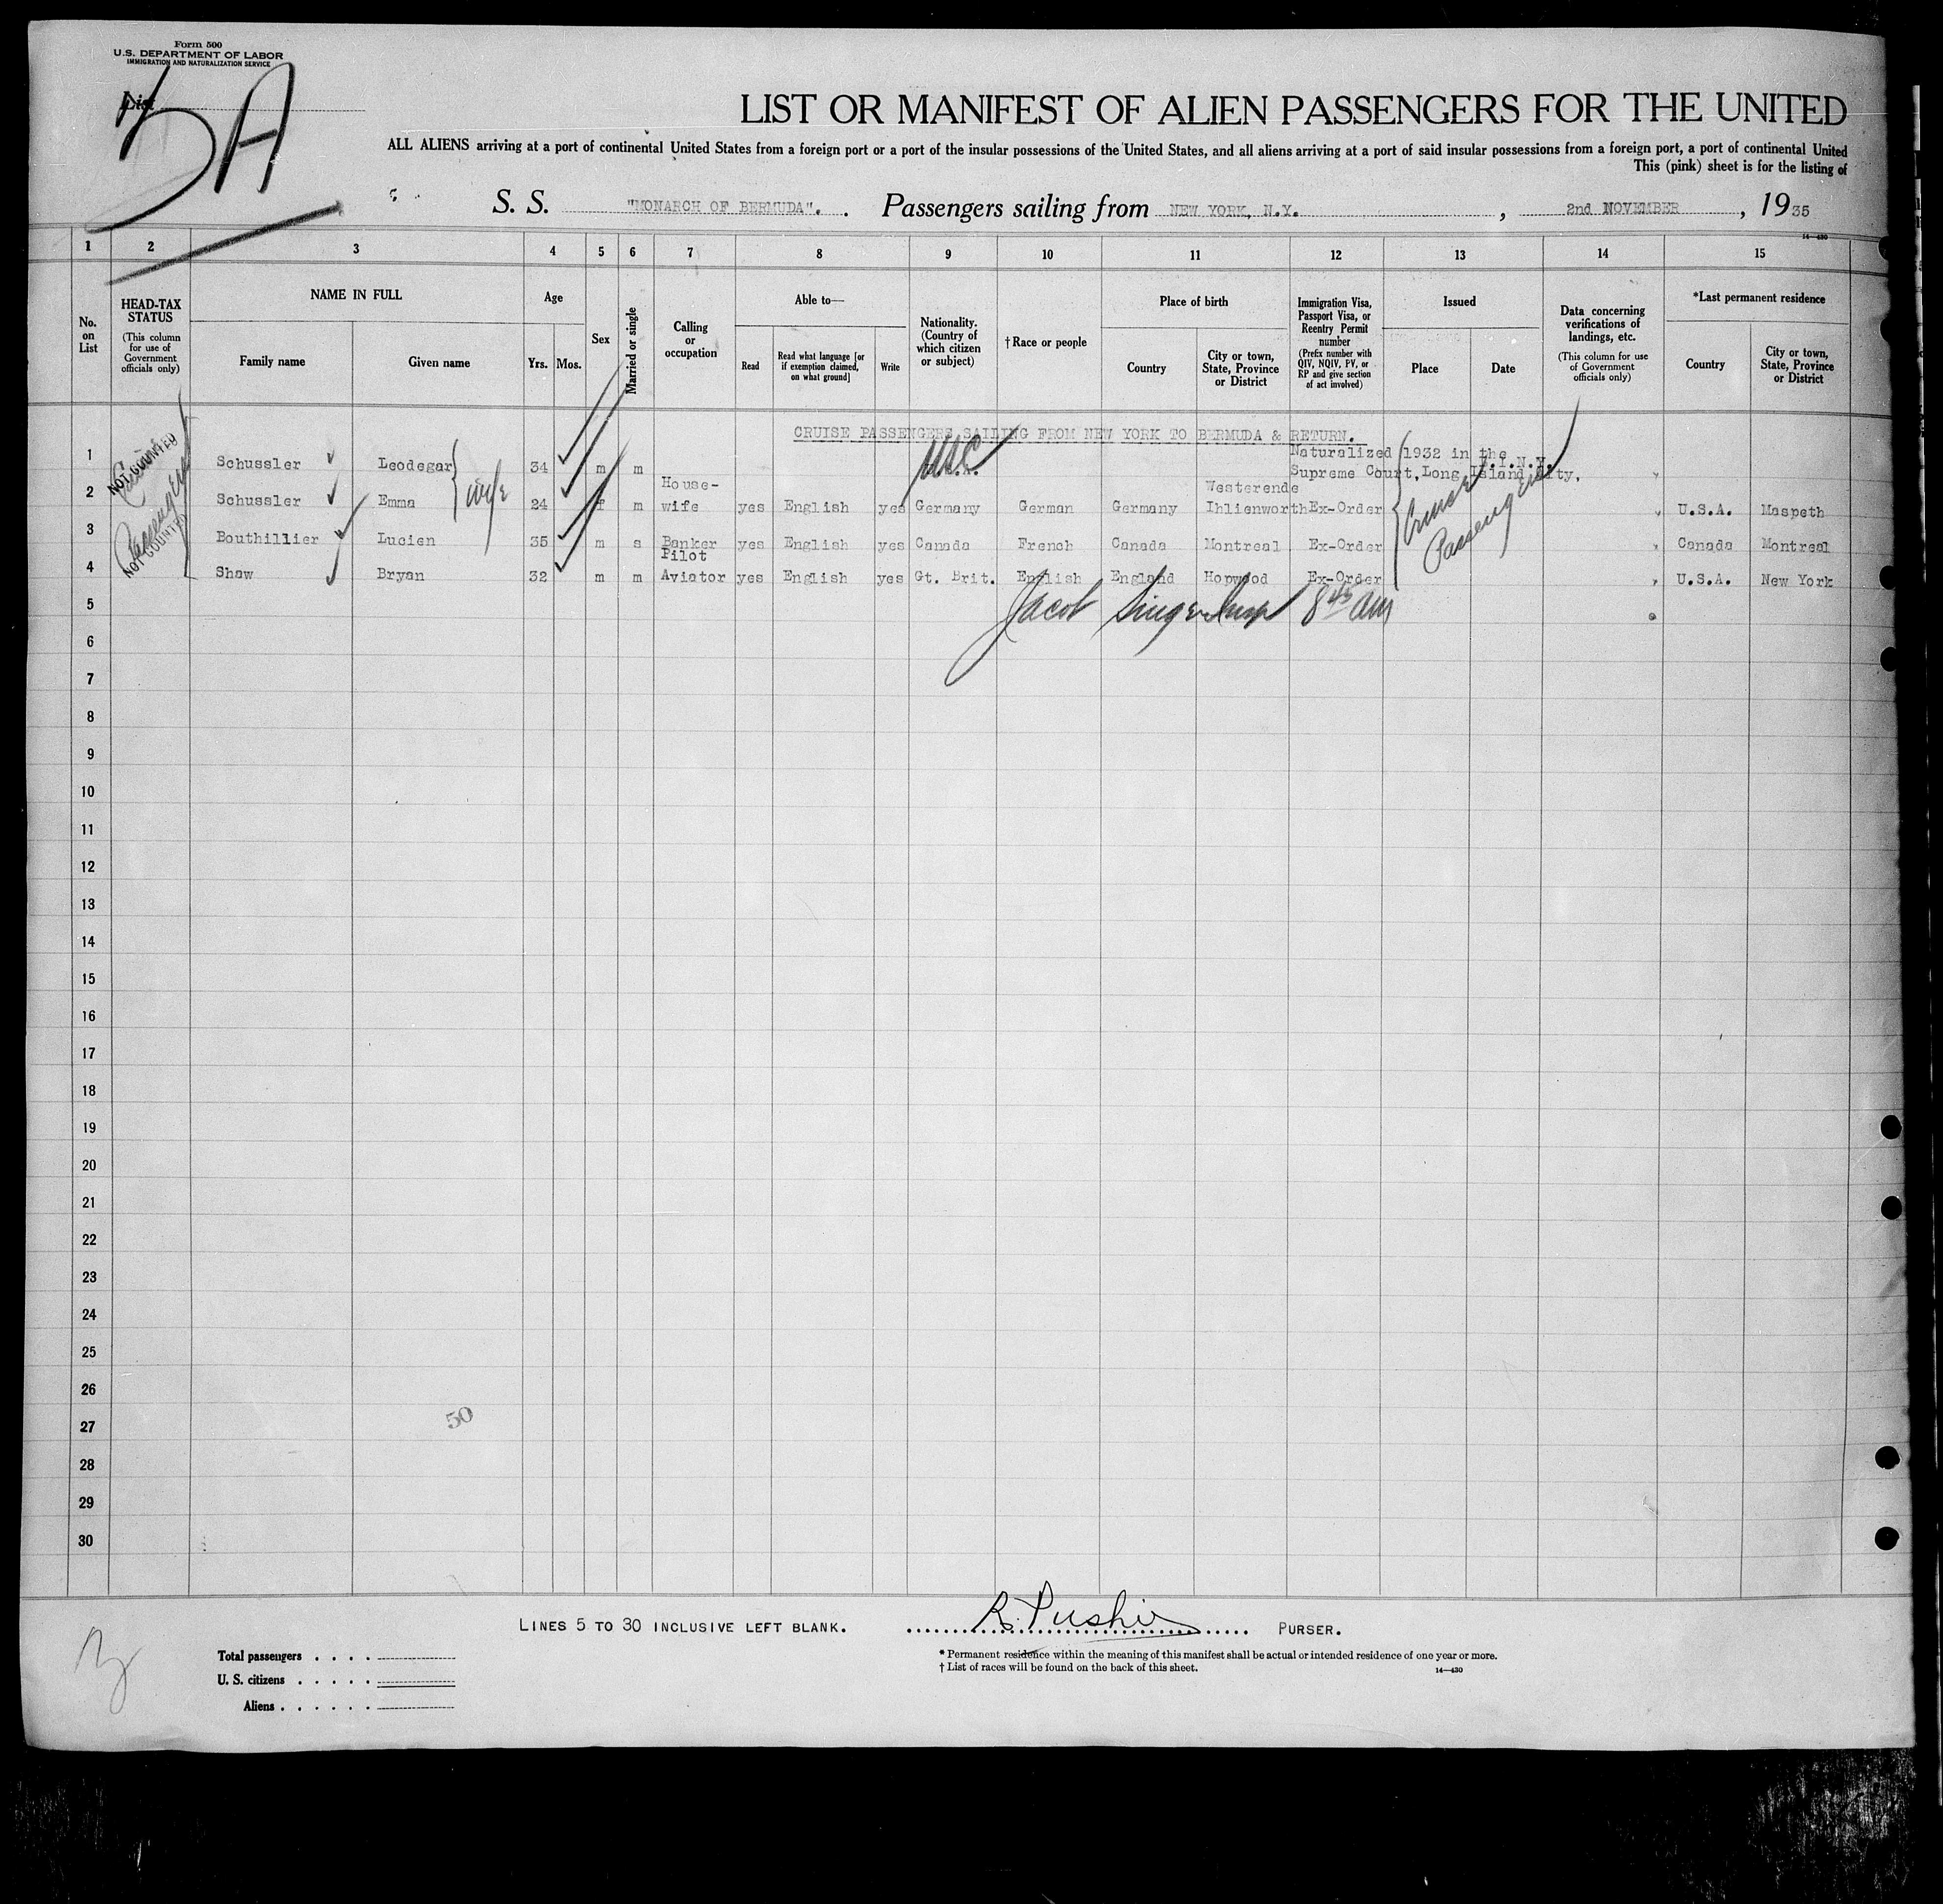 Form 500
U.S. DEPARTMENT OF LABOR
IMMIGRATION AND NATURALIZATION SERVICE
List
5A
LIST OR MANIFEST OF ALIEN PASSENGERS FOR THE UNITED
ALL ALIENS arriving at a port of continental United States from a foreign port or a port of the insular possessions of the United States, and all aliens arriving at a port of said insular possessions from a foreign port, a port of continental United
This (pink) sheet is for the listing of
S. S. "MONARCH OF BERMUDA". Passengers sailing from NEW YORK, N.Y. , 2nd NOVEMBER , 1935
14—430
1 2 3 4 5 6 7 8 9 10 11 12 13 14 15
No. on List
HEAD-TAX STATUS
(This column for use of Government officials only)
NAME IN FULL
Family name
Given name
Age
Yrs.
Mos.
Sex
Married or single
Calling or occupation
Able to—
Read
Read what language [or if exemption claimed, on what ground]
Write
Nationality. (Country of which citizen or subject)
†Race or people
Place of birth
Country
City or town, State, Province or District
Immigration Visa, Passport Visa, or Reentry Permit number
(Prefix number with QIV, NQIV, PV, or RP and give section of act involved)
Issued
Place
Date
Data concerning verifications of landings, etc.
(This column for use of Government officials only)
*Last permanent residence
Country
City or town, State, Province or District
CRUISE PASSENGERS SAILING FROM NEW YORK TO BERMUDA & RETURN.
NOT COUNTED
Cruise Passengers
NOT COUNTED
1 Schussler Leodegar 34 m m USC Naturalized 1932 in the Supreme Court, Long Island City, L.I.N.Y.
wife
2 Schussler Emma 24 f m House-wife yes English yes Germany German Germany Westerende Ihlienworth Ex-Order U.S.A. Maspeth
3 Bouthillier Lucien 35 m s Banker yes English yes Canada French Canada Montreal Ex-Order Canada Montreal
4 Shaw Bryan 32 m m Pilot Aviator yes English yes Gt. Brit. English England Hopwood Ex-Order U.S.A. New York
Cruise Passengers
Jacob Singer Insp 8 45 am
5
6
7
8
9
10
11
12
13
14
15
16
17
18
19
20
21
22
23
24
25
26
27
28
29
30
50
LINES 5 TO 30 INCLUSIVE LEFT BLANK. PURSER.
Total passengers
U. S. citizens
Aliens
* Permanent residence within the meaning of this manifest shall be actual or intended residence of one year or more.
† List of races will be found on the back of this sheet.
14—430